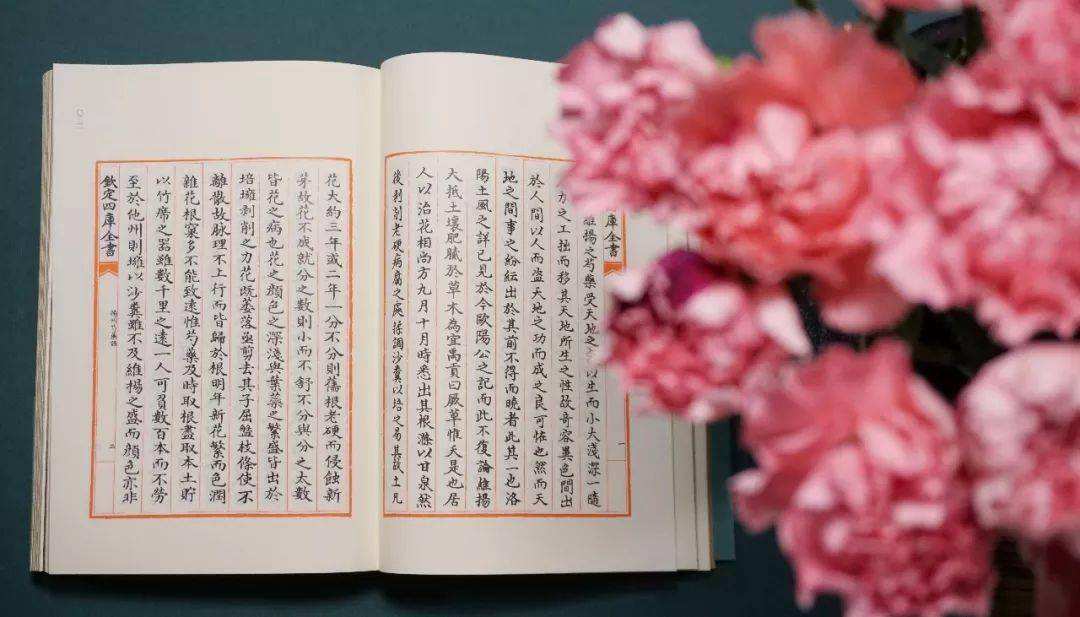 庫全書
一
維揚之芍藥受天地之以生而小大淺深一隨
力之工拙而移其天地所生之性故奇容異色間出
於人間以人而盜天地之功而成之良可怪也然而天
地之間事之紛紜出於其前不得而曉者此其一也洛
陽土風之詳已見於今歐陽公之記而此不復論維揚
大抵土壤肥膩於草木為宜禹貢曰厥草惟夭是也居
人以治花相尚方九月十月時悉出其根滌以甘泉然
後剥削老硬病腐之處揉調沙糞以培之易其故土凡
花大約三年或二年一分不分則舊根老硬而侵蝕新
芽故花不成就分之數則小而不舒不分與分之太數
皆花之病也花之顔色之深淺與葉蘂之繁盛皆出於
培壅剥削之力花既萎落亟剪去其子屈盤枝條使不
離散故脉理不上行而皆歸於根明年新花繁而色潤
雜花根窠多不能致遠惟芍藥及時取根盡取本土貯
以竹席之器雖數千里之遠一人可負數百本而不勞
至於他州則壅以沙糞雖不及維揚之盛而顔色亦非
欽定四庫全書
揚州芍藥譜
二